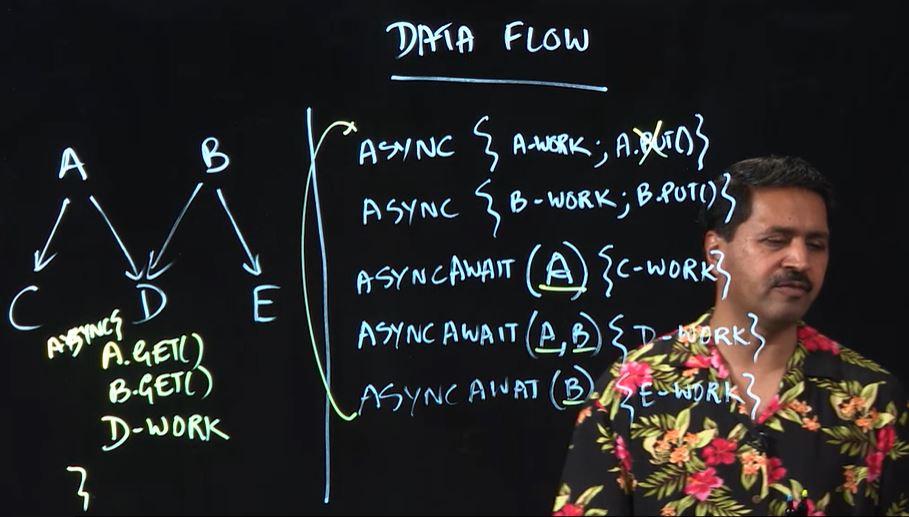 DATA FLOW
A B
C D E
ASYNC {
A.GET()
B.GET()
D-WORK
}
ASYNC { A-WORK; A.PUT() }
ASYNC { B-WORK; B.PUT() }
ASYNCAWAIT (A) {C-WORK}
ASYNCAWAIT (A,B) {D-WORK}
ASYNCAWAT (B) {E-WORK}